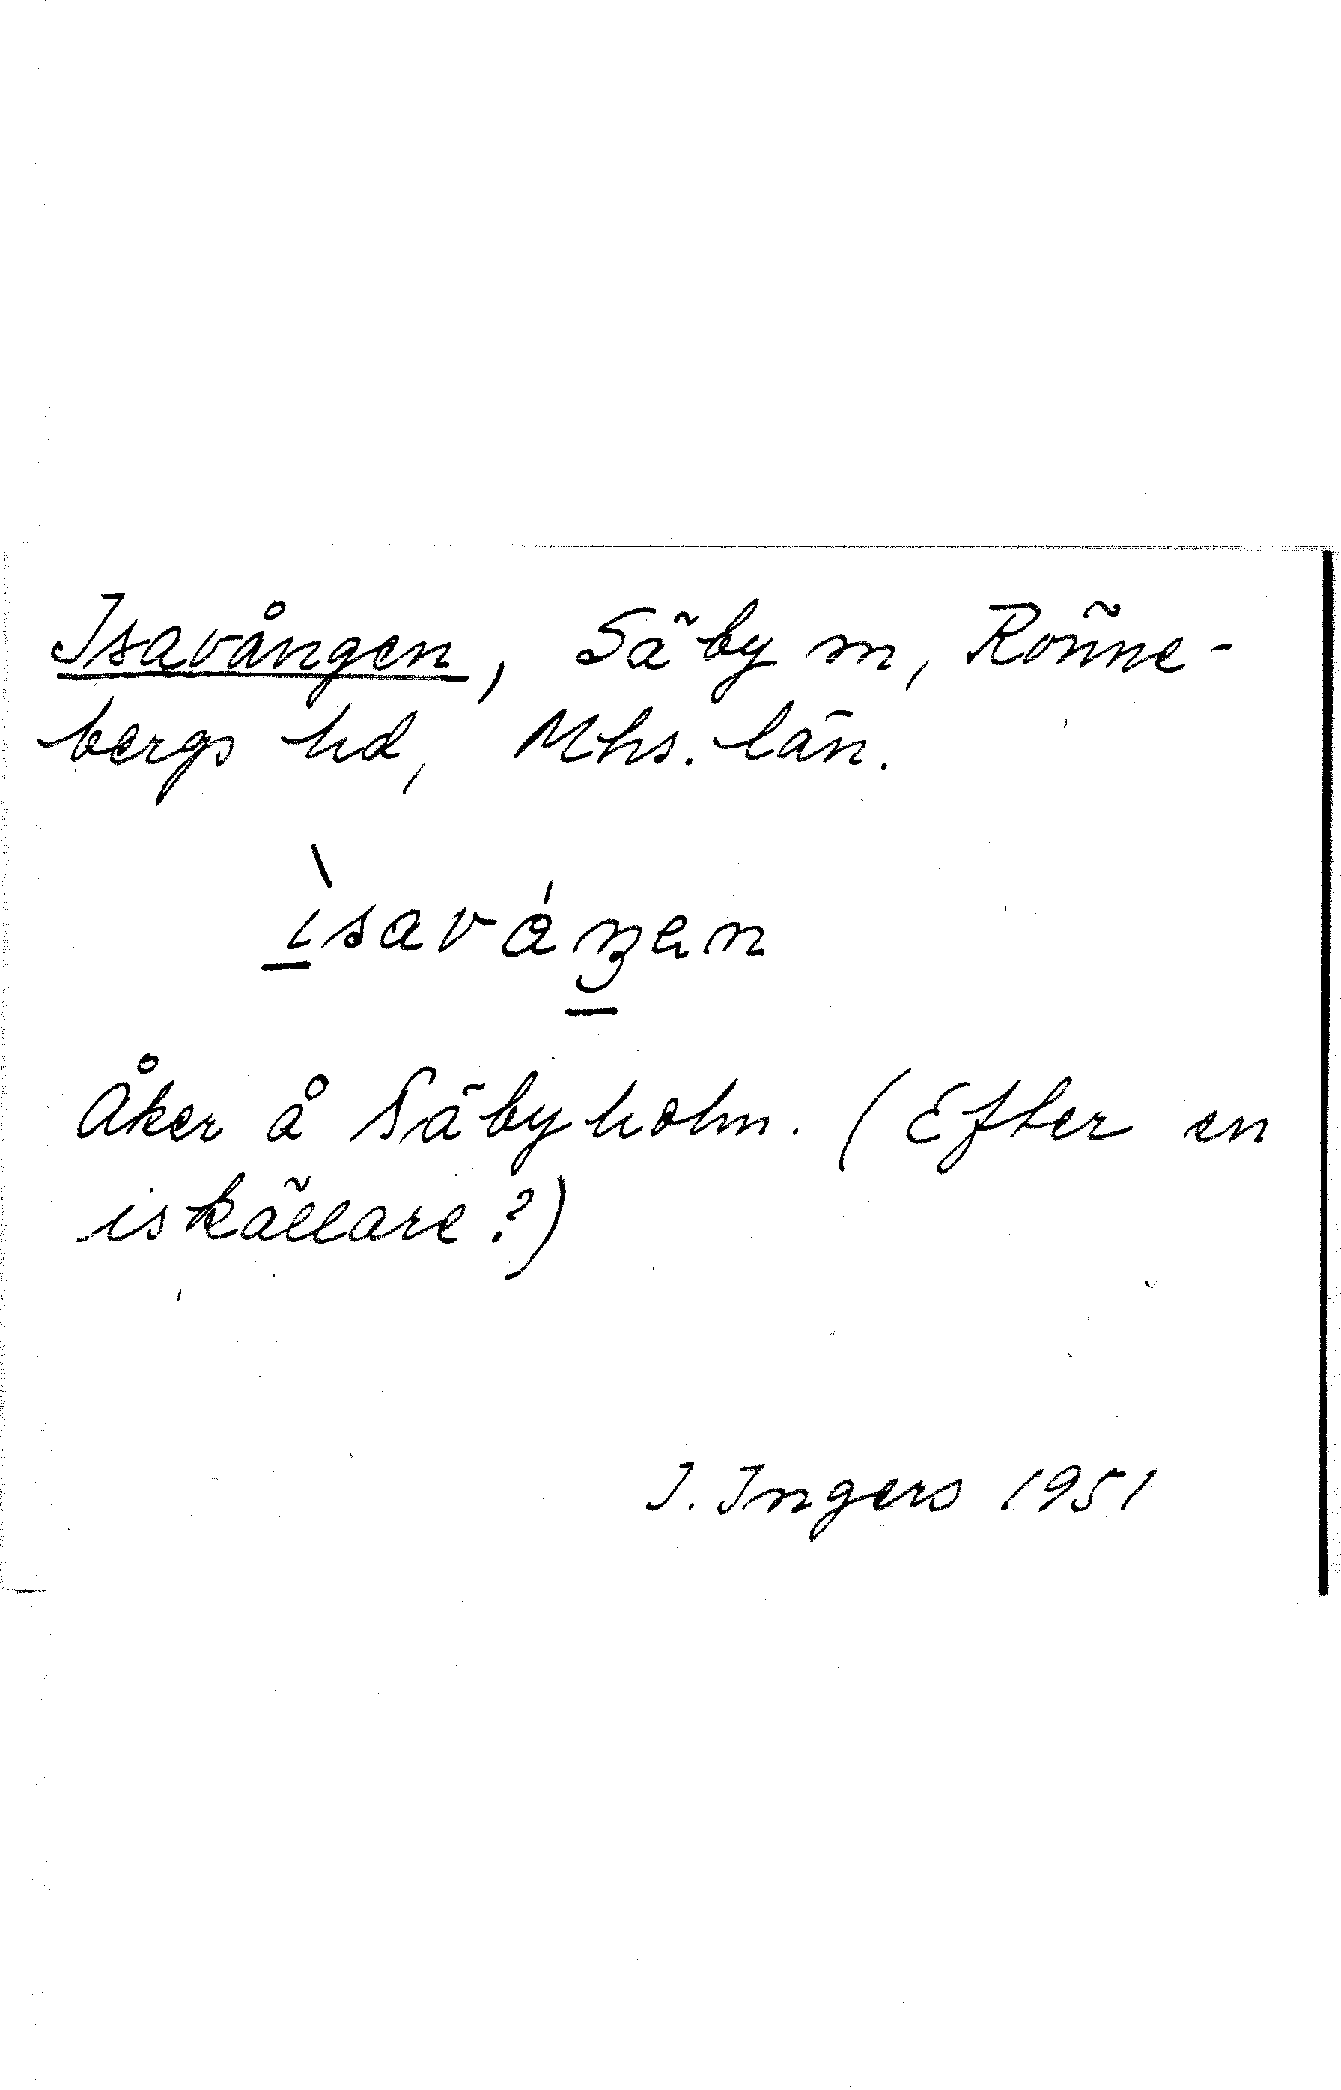 Isavången, Säby sn, Rönne-
bergs hd, Mhs. län.
ìsaváŋen
Åker å Säbyholm. (Efter en
iskällare?)
I. Ingers 1951